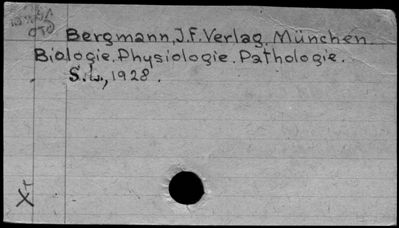 Bergmann, J.F. Verlag, München.
Biologie. Physiologie. Pathologie.
S.L., 1928.
X+